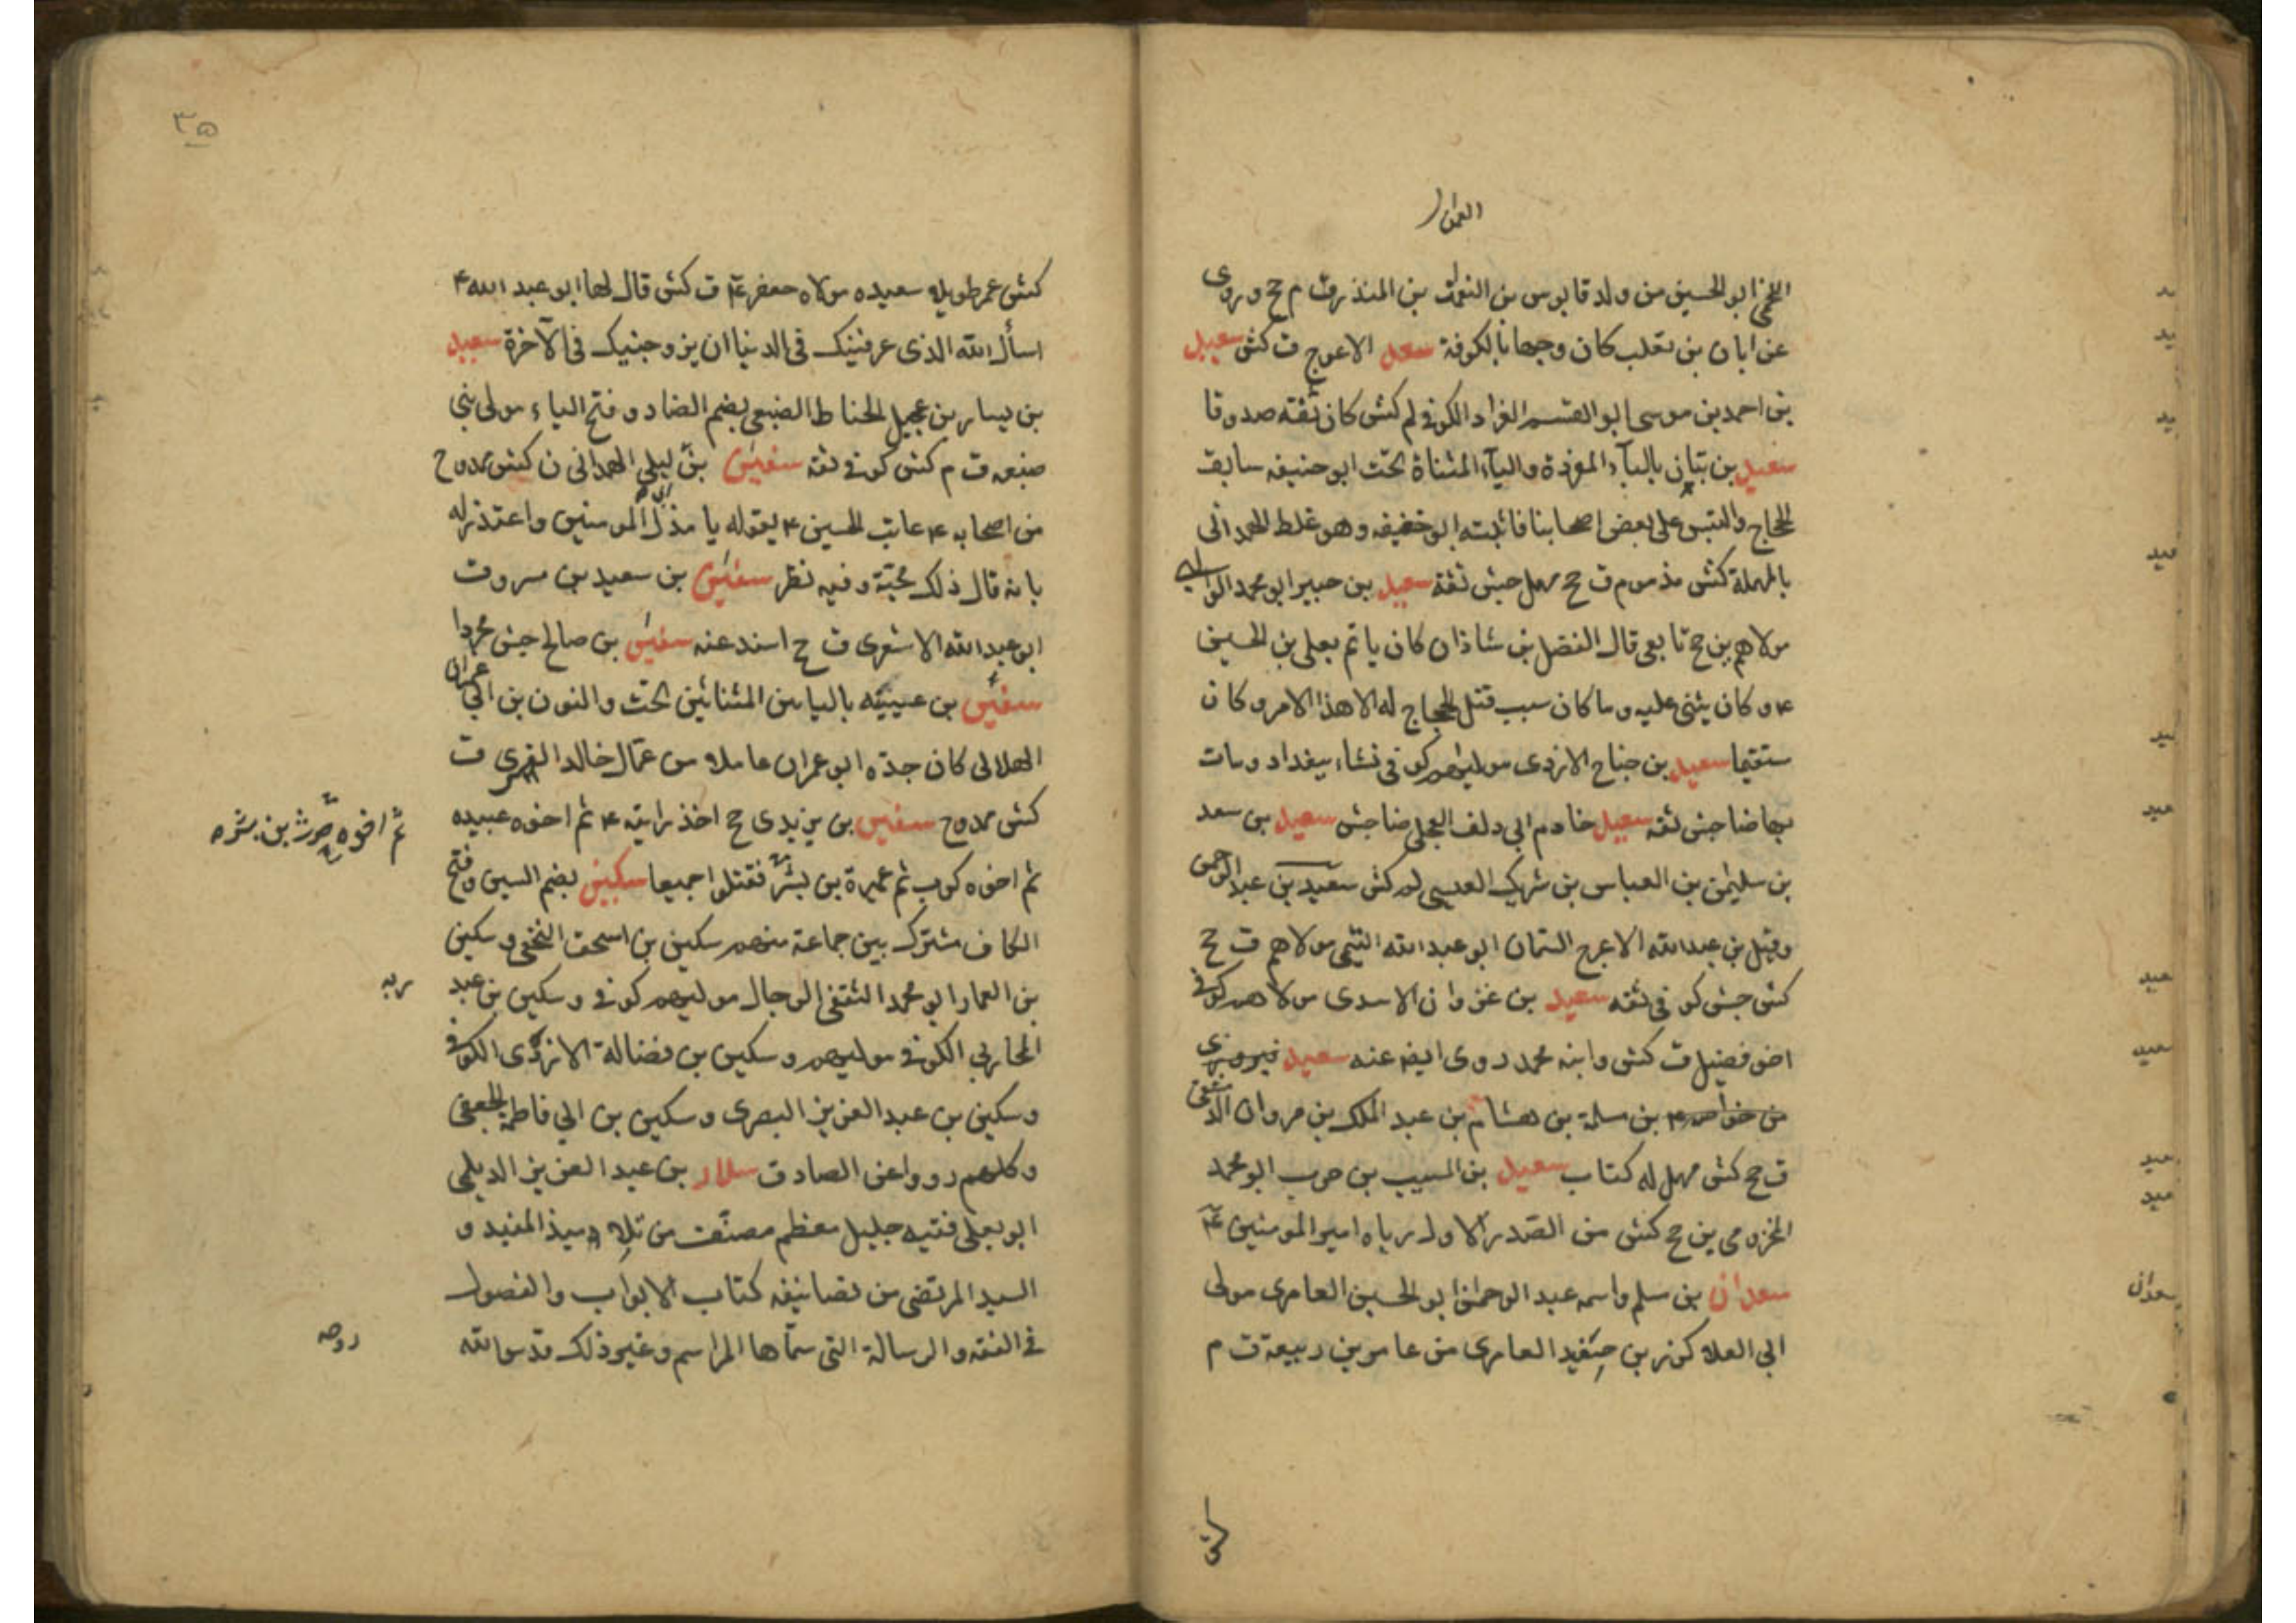 العمان
اللخمى ابو الحسين من ولد قابوس بن النعمان بن المنذر ق م جح وروى
عن ابان بن تغلب كان وجها بالكوفة سعد الاعرج ق كش سعيد
بن احمد بن موسى ابو القسم الغراد الكوفى لم كش كان ثقه صدوقا
سعيد بن بيان بالبآء المفردة واليآء المثناة تحت ابو حنيفه سابق
الحاج والتبس على بعض اصحابنا فاثبته ابو خفيفه وهو غلط الهمدانى
بالمهملة كش مذموم ق جح مهمل جش ثقة سعيد بن جبير ابو محمد الوالبى
مولاهم ين جح تابعى قال الفضل بن شاذان كان ياتم بعلى بن الحسين
ع وكان يثنى عليه وما كان سبب قتل الحجاج له الا هذا الامر وكان
مستقيما سعيد بن جناح الازدى مولاهم كوفى نشاء ببغداد ومات
بها ضا جش ثقه سعيد خادم ابى دلف العجلى ضا جش سعيد بن سعد
بن سليمن بن العباس بن شريك العبسى لم كش سعيد بن عبد الرحمن
وقيل بن عبد الله الاعرج السمان ابو عبد الله التيمى مولاهم ق جح
كش جش كوفى ثقه سعيد بن غزوان الاسدى مولاهم كوفى
اخو فضيل ق كش وابنه محمد روى ايضه عنه سعيد فيروزى
من خواصه بن سلمة بن هشام بن عبد الملك بن مروان
ق جح كش مهمل له كتاب سعيد بن المسيب بن حرب ابو محمد
المخزومى ين جح كش من الصدر الاول رباه امير المومنين ع
سعدان بن سلم واسمه عبد الرحمن ابو الحسين العامرى مولى
ابى العلا كرز بن حفيد العامرى من عامر بن ربيعة ق م
كش
سعدان
٣٥
كش عمر طويلا سعيده مولاه جعفر ع ق كش قال لها ابو عبد الله ع
اسأل الله الذى عرفنيك فى الدنيا ان يزوجنيك فى الآخرة سعيد
بن يسار بن عجيل الحناط الضبعى بضم الضاد وفتح الباء مولى بنى
ضبعه ق م كش كوفى ثقه سفين بن ليلى الهمدانى ن كش ممدوح
من اصحابه ع عاتب الحسين ع بقوله يا مذل المومنين واعتذر له
بانه قال ذلك محبة وفيه نظر سفين بن سعيد بن مسروق
ابو عبد الله الاشعرى ق جح اسند عنه سفين بن صالح جش
سفين بن عيينه باليائين المثناتين تحت والنون بن ابى عمران
الهلالى كان جده ابو عمران عاملا من عمال خالد القسرى ق
كش ممدوح سفين بن يزيد ى جح اخذ رايته ع ثم اخوه عبيده
ثم اخوه حرث بن بشره
ثم اخوه كرب ثم عميرة بن بشر فقتلوا جميعا سكين بضم السين وفتح
الكاف مشترك بين جماعة منهم سكين بن اسحق النخعى وسكين
بن العمار ابو محمد الثقفى الرحال مولاهم كوفى وسكين بن عبد
ربه
المحاربى الكوفى مولاهم وسكين بن فضالة الازدى الكوفى
وسكين بن عبد العزيز البصرى وسكين بن ابى فاطمة الجعفى
وكلهم رووا عن الصادق سلار بن عبد العزيز الديلمى
ابو يعلى فقيه جليل معظم مصنف من تلاميذ المفيد و
السيد المرتضى من تصانيفه كتاب الابواب والفصول
فى الفقه والرسالة التى سماها المراسم وغير ذلك قدس الله
روحه